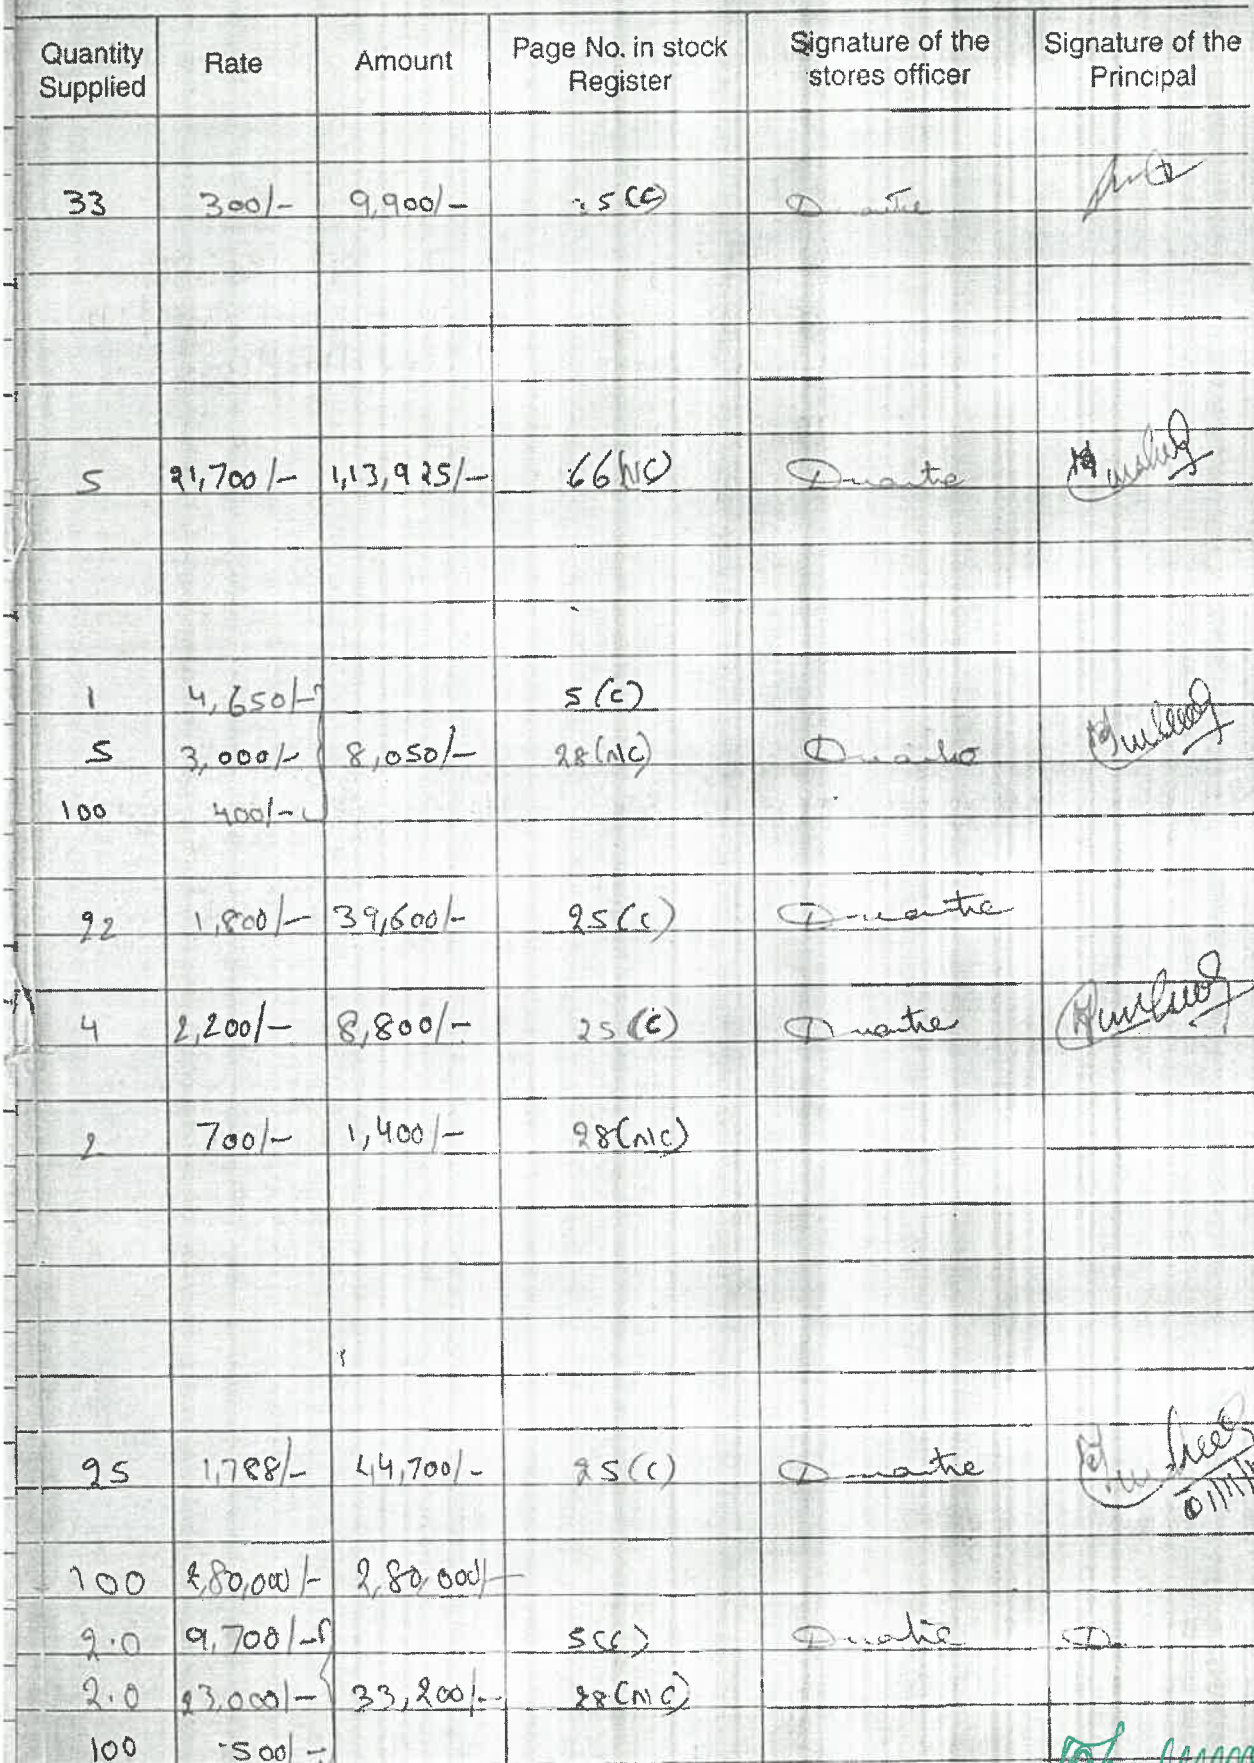 Quantity Supplied Rate Amount Page No. in stock Register Signature of the stores officer Signature of the Principal
33 300/- 9,900/- 25(C)
5 21,700/- 1,13,925/- 66(N/C) Duarte
1 4,650/- 5(C)
5 3,000/- 8,050/- 28(N/C) Duarte
100 400/-
22 1,800/- 39,600/- 25(C) Duarte
4 2,200/- 8,800/- 25(C) Duarte
2 700/- 1,400/- 28(N/C)
25 1,788/- 44,700/- 25(C) Duarte
100 2,80,000/- 2,80,000/-
2.0 9,700/- 5(C) Duarte
2.0 23,000/- 33,200/- 28(N/C)
100 500/-